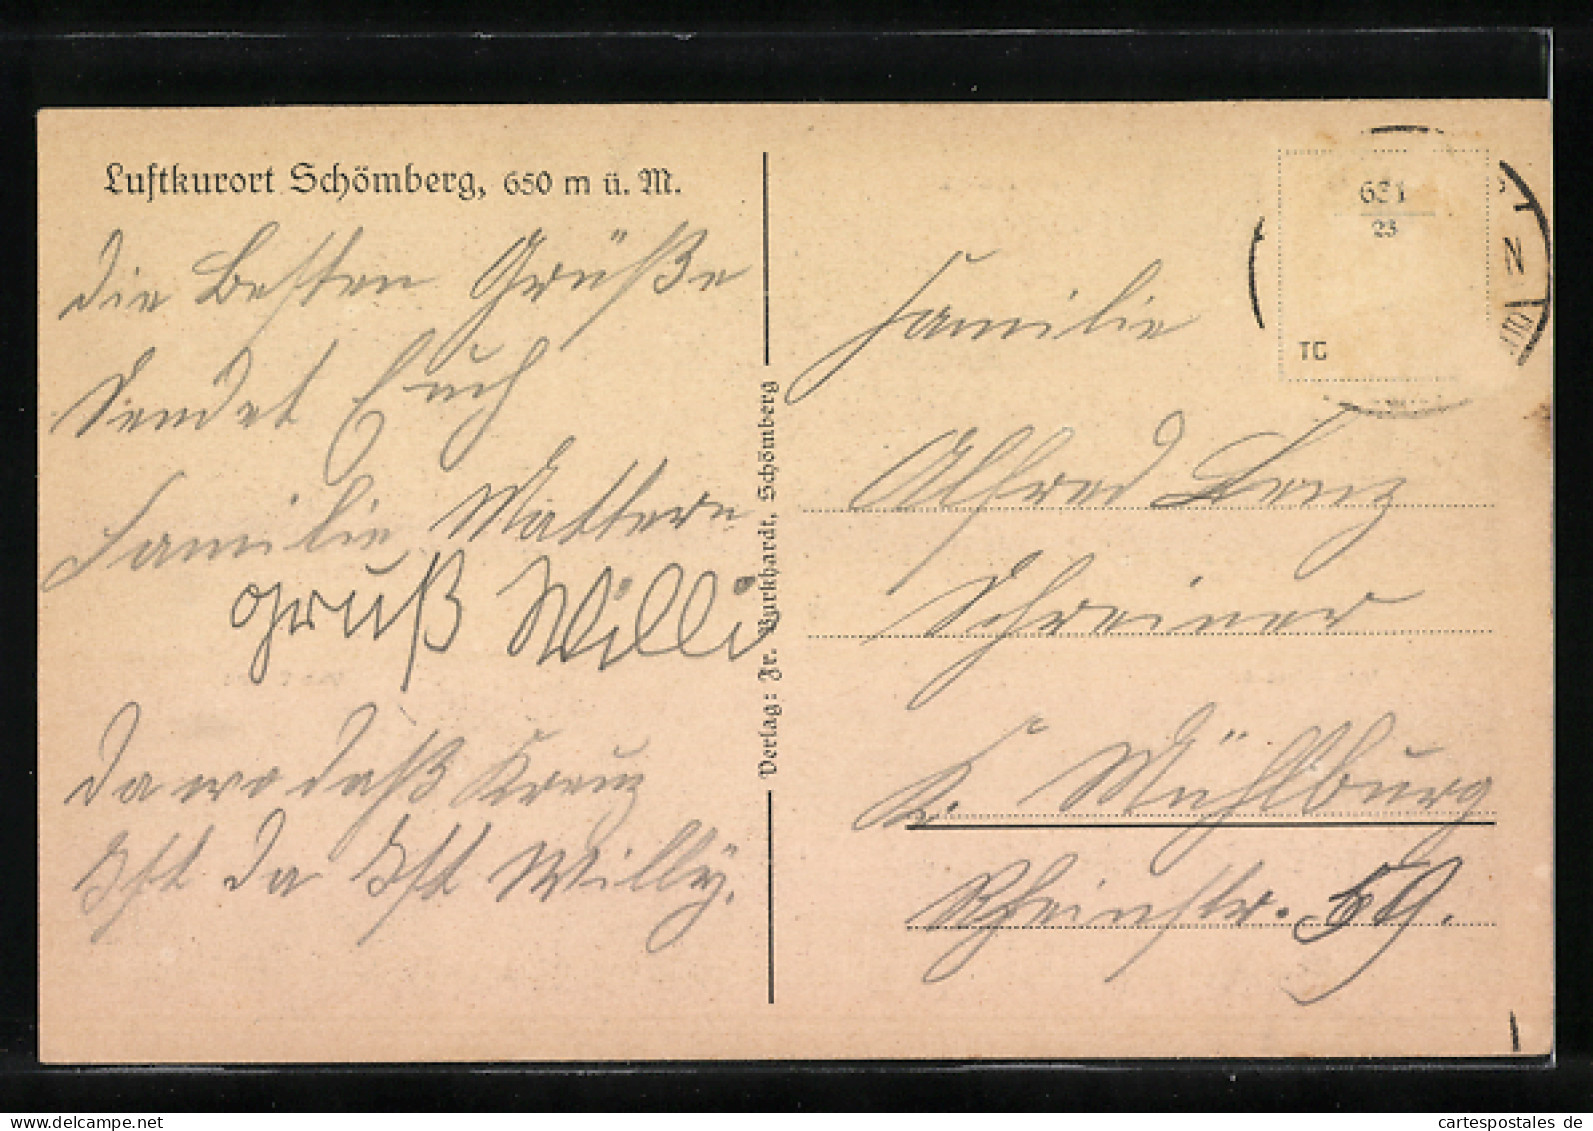 Luftkurort Schömberg, 650 m ü. M.
Die Besten Grüße
Sendet Euch
Familie Mattern
Gruß Willi
Da wo daß Kreuz
Ist da Ist Willÿ.
Verlag: Fr. Burkhardt, Schömberg
631
23
TG
N
VIII
Familie
Alfred Lenz
Schreiner
K. Mühlburg
Rheinstr. 59.
cartespostales de